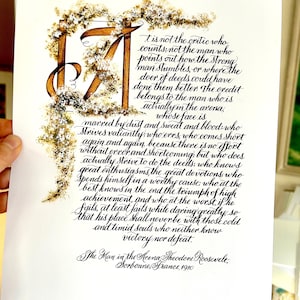 It is not the critic who
counts: not the man who
points out how the strong
man stumbles, or where the
doer of deeds could have
done them better. The credit
belongs to the man who is
actually in the arena,
whose face is
marred by dust and sweat and blood: who
strives valiantly: who errs, who comes short
again and again, because there is no effort
without error and shortcoming: but who does
actually strive to do the deeds; who knows
great enthusiasms, the great devotions, who
spends himself in a worthy cause; who at the
best knows in the end the triumph of high
achievement, and who at the worst, if he
fails, at least fails while daring greatly, so
that his place shall never be with those cold
and timid souls who neither know
victory nor defeat.
The Man in the Arena, Theodore Roosevelt,
Sorbonne, France, 1910